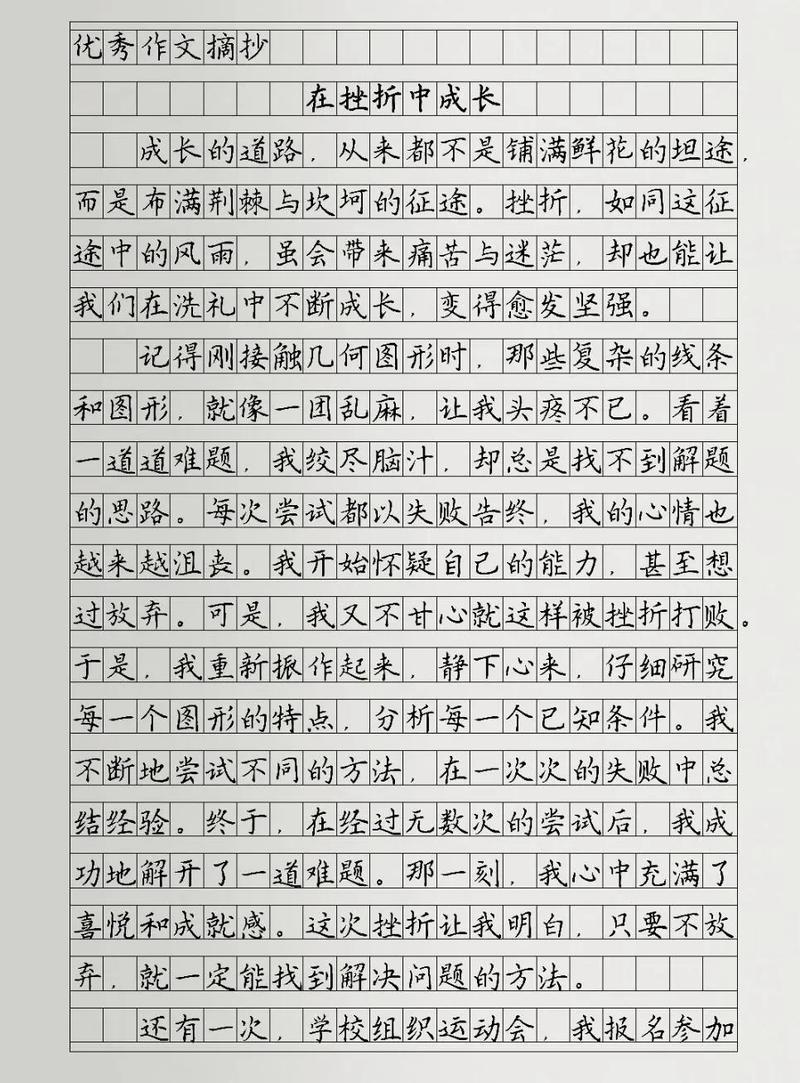 优秀作文摘抄
在挫折中成长
成长的道路，从来都不是铺满鲜花的坦途，
而是布满荆棘与坎坷的征途。挫折，如同这征
途中的风雨，虽会带来痛苦与迷茫，却也能让
我们在洗礼中不断成长，变得愈发坚强。
记得刚接触几何图形时，那些复杂的线条
和图形，就像一团乱麻，让我头疼不已。看着
一道道难题，我绞尽脑汁，却总是找不到解题
的思路。每次尝试都以失败告终，我的心情也
越来越沮丧。我开始怀疑自己的能力，甚至想
过放弃。可是，我又不甘心就这样被挫折打败。
于是，我重新振作起来，静下心来，仔细研究
每一个图形的特点，分析每一个已知条件。我
不断地尝试不同的方法，在一次次的失败中总
结经验。终于，在经过无数次的尝试后，我成
功地解开了一道难题。那一刻，我心中充满了
喜悦和成就感。这次挫折让我明白，只要不放
弃，就一定能找到解决问题的方法。
还有一次，学校组织运动会，我报名参加